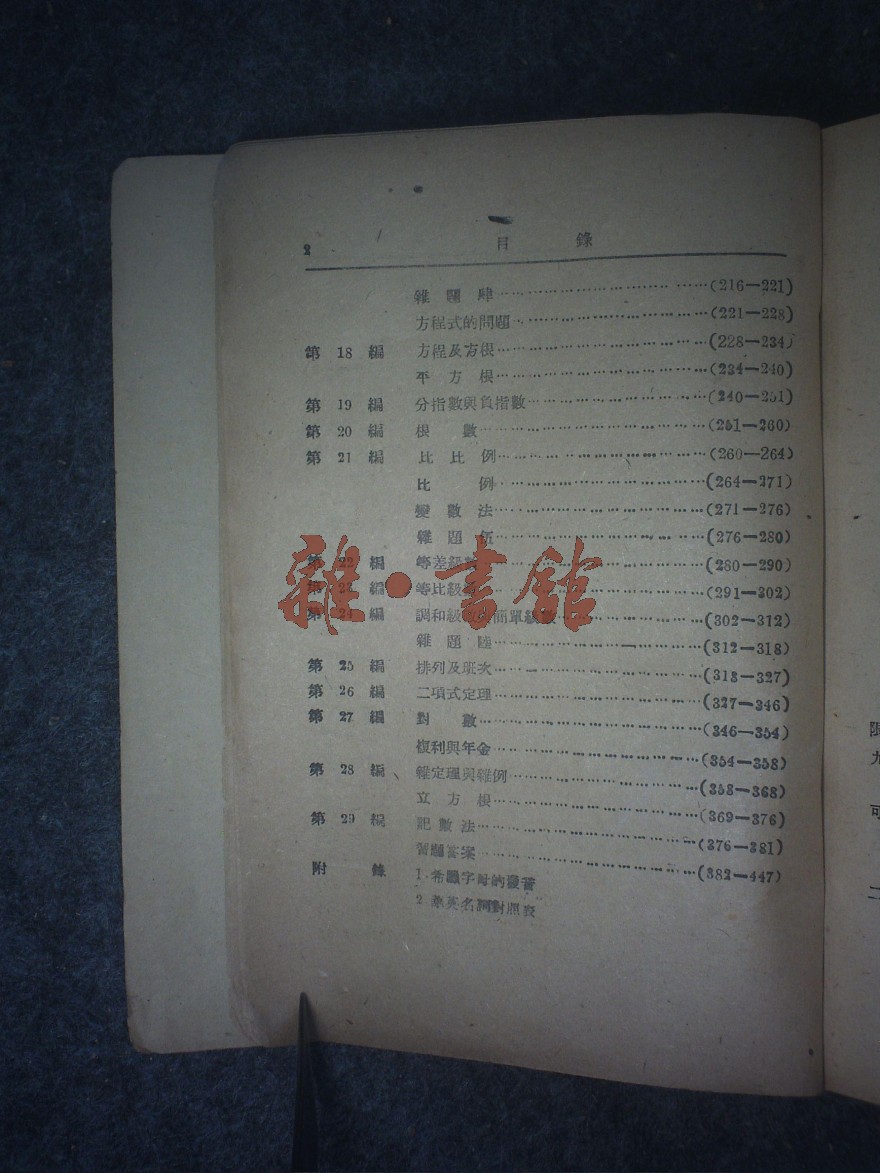 2 目 錄
雜 題 肆 (216—221)
方程式的問題 (221—228)
第 18 編 方程及方根 (228—234)
平 方 根 (234—240)
第 19 編 分指數與負指數 (240—251)
第 20 編 根 數 (251—260)
第 21 編 比 比 例 (260—264)
比 例 (264—271)
變 數 法 (271—276)
雜 題 伍 (276—280)
第 22 編 等差級 (280—290)
第 編 等比級 (291—302)
第 編 調和級 簡單級 (302—312)
雜 題 陸 (312—318)
第 25 編 排列及 (318—327)
第 26 編 二項式定理 (327—346)
第 27 編 對 數 (346—354)
複利與年金 (354—358)
第 28 編 雜定理與雜例 (358—368)
立 方 根 (369—376)
第 29 編 記數法 (376—381)
習題答案 (382—447)
附 錄 1.希臘字母的發音
2.華英名詞對照表
雜·書館
限
九
可
二